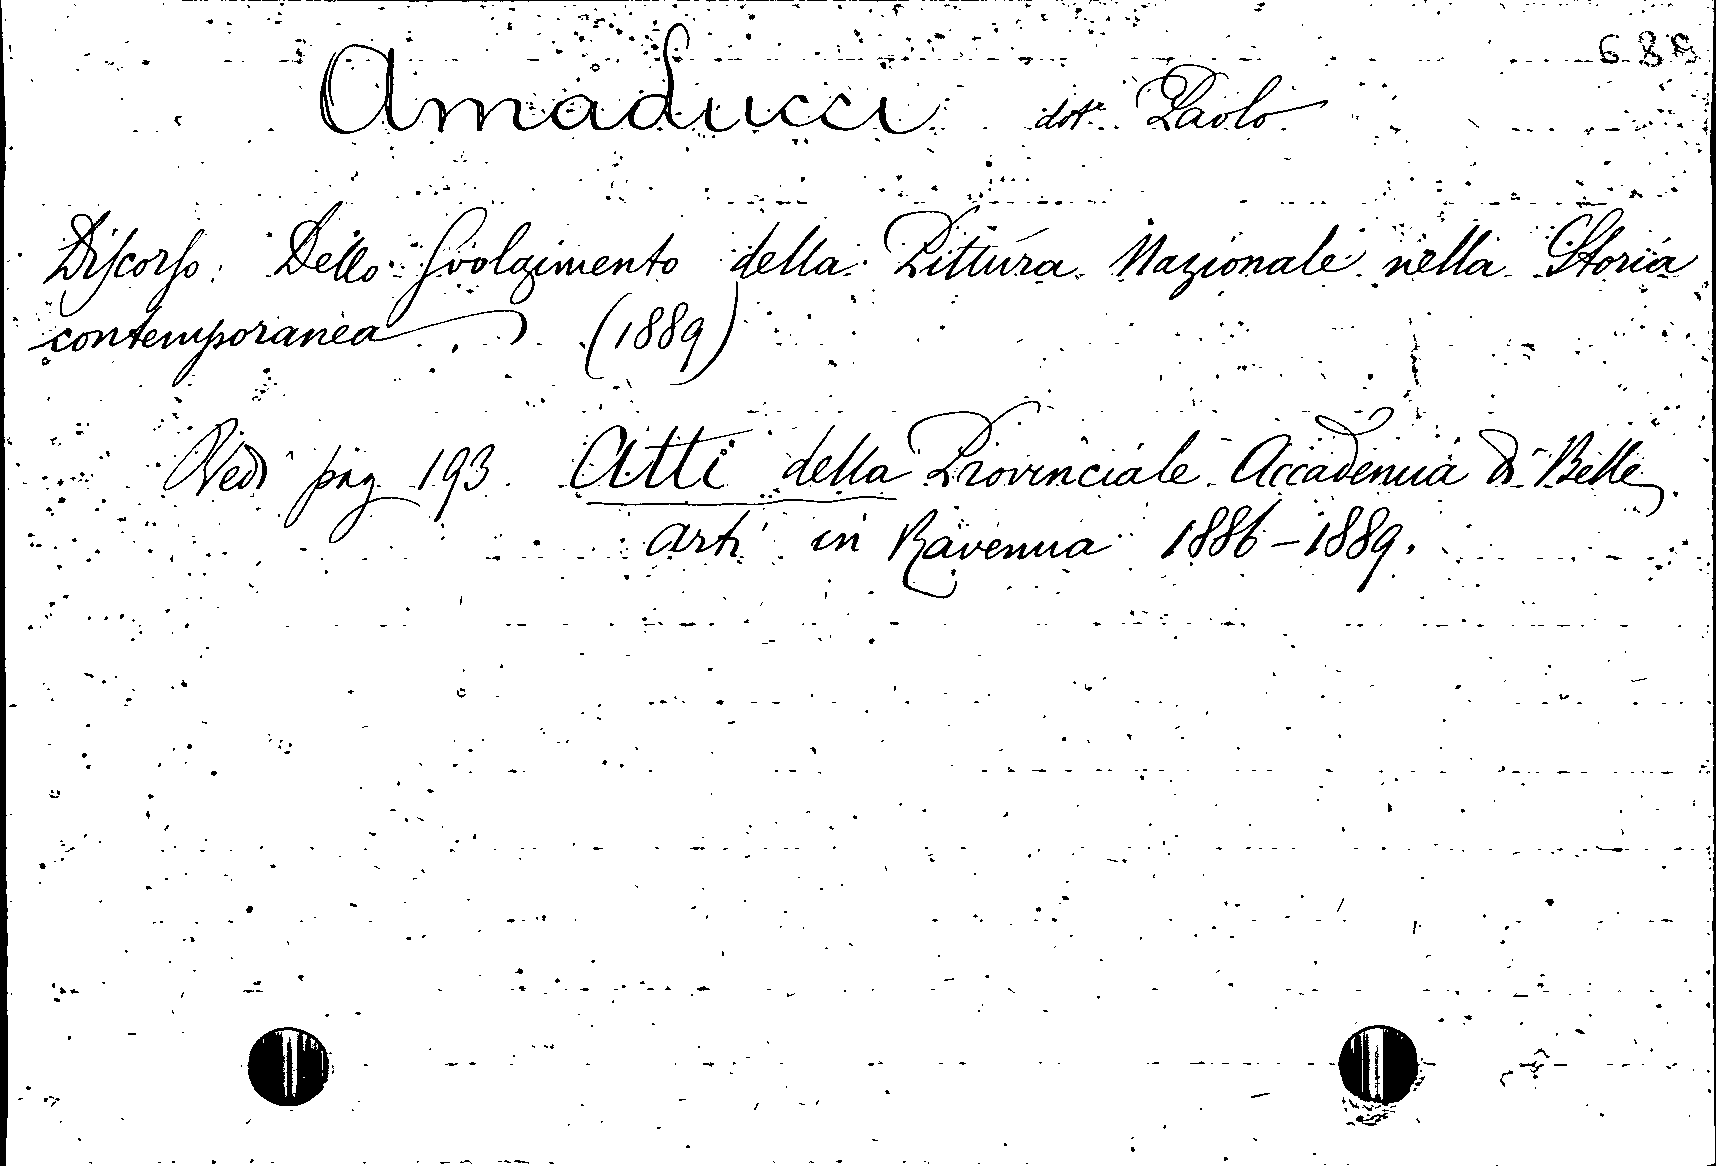 688
Amaducci dot.r Paolo
Discorso: Dello Svolgimento della Pittura Nazionale nella Storia
contemporanea. (1889)
Vedi pag 193. Atti della Provinciale Accademia di Belle
arti in Ravenna 1886-1889.